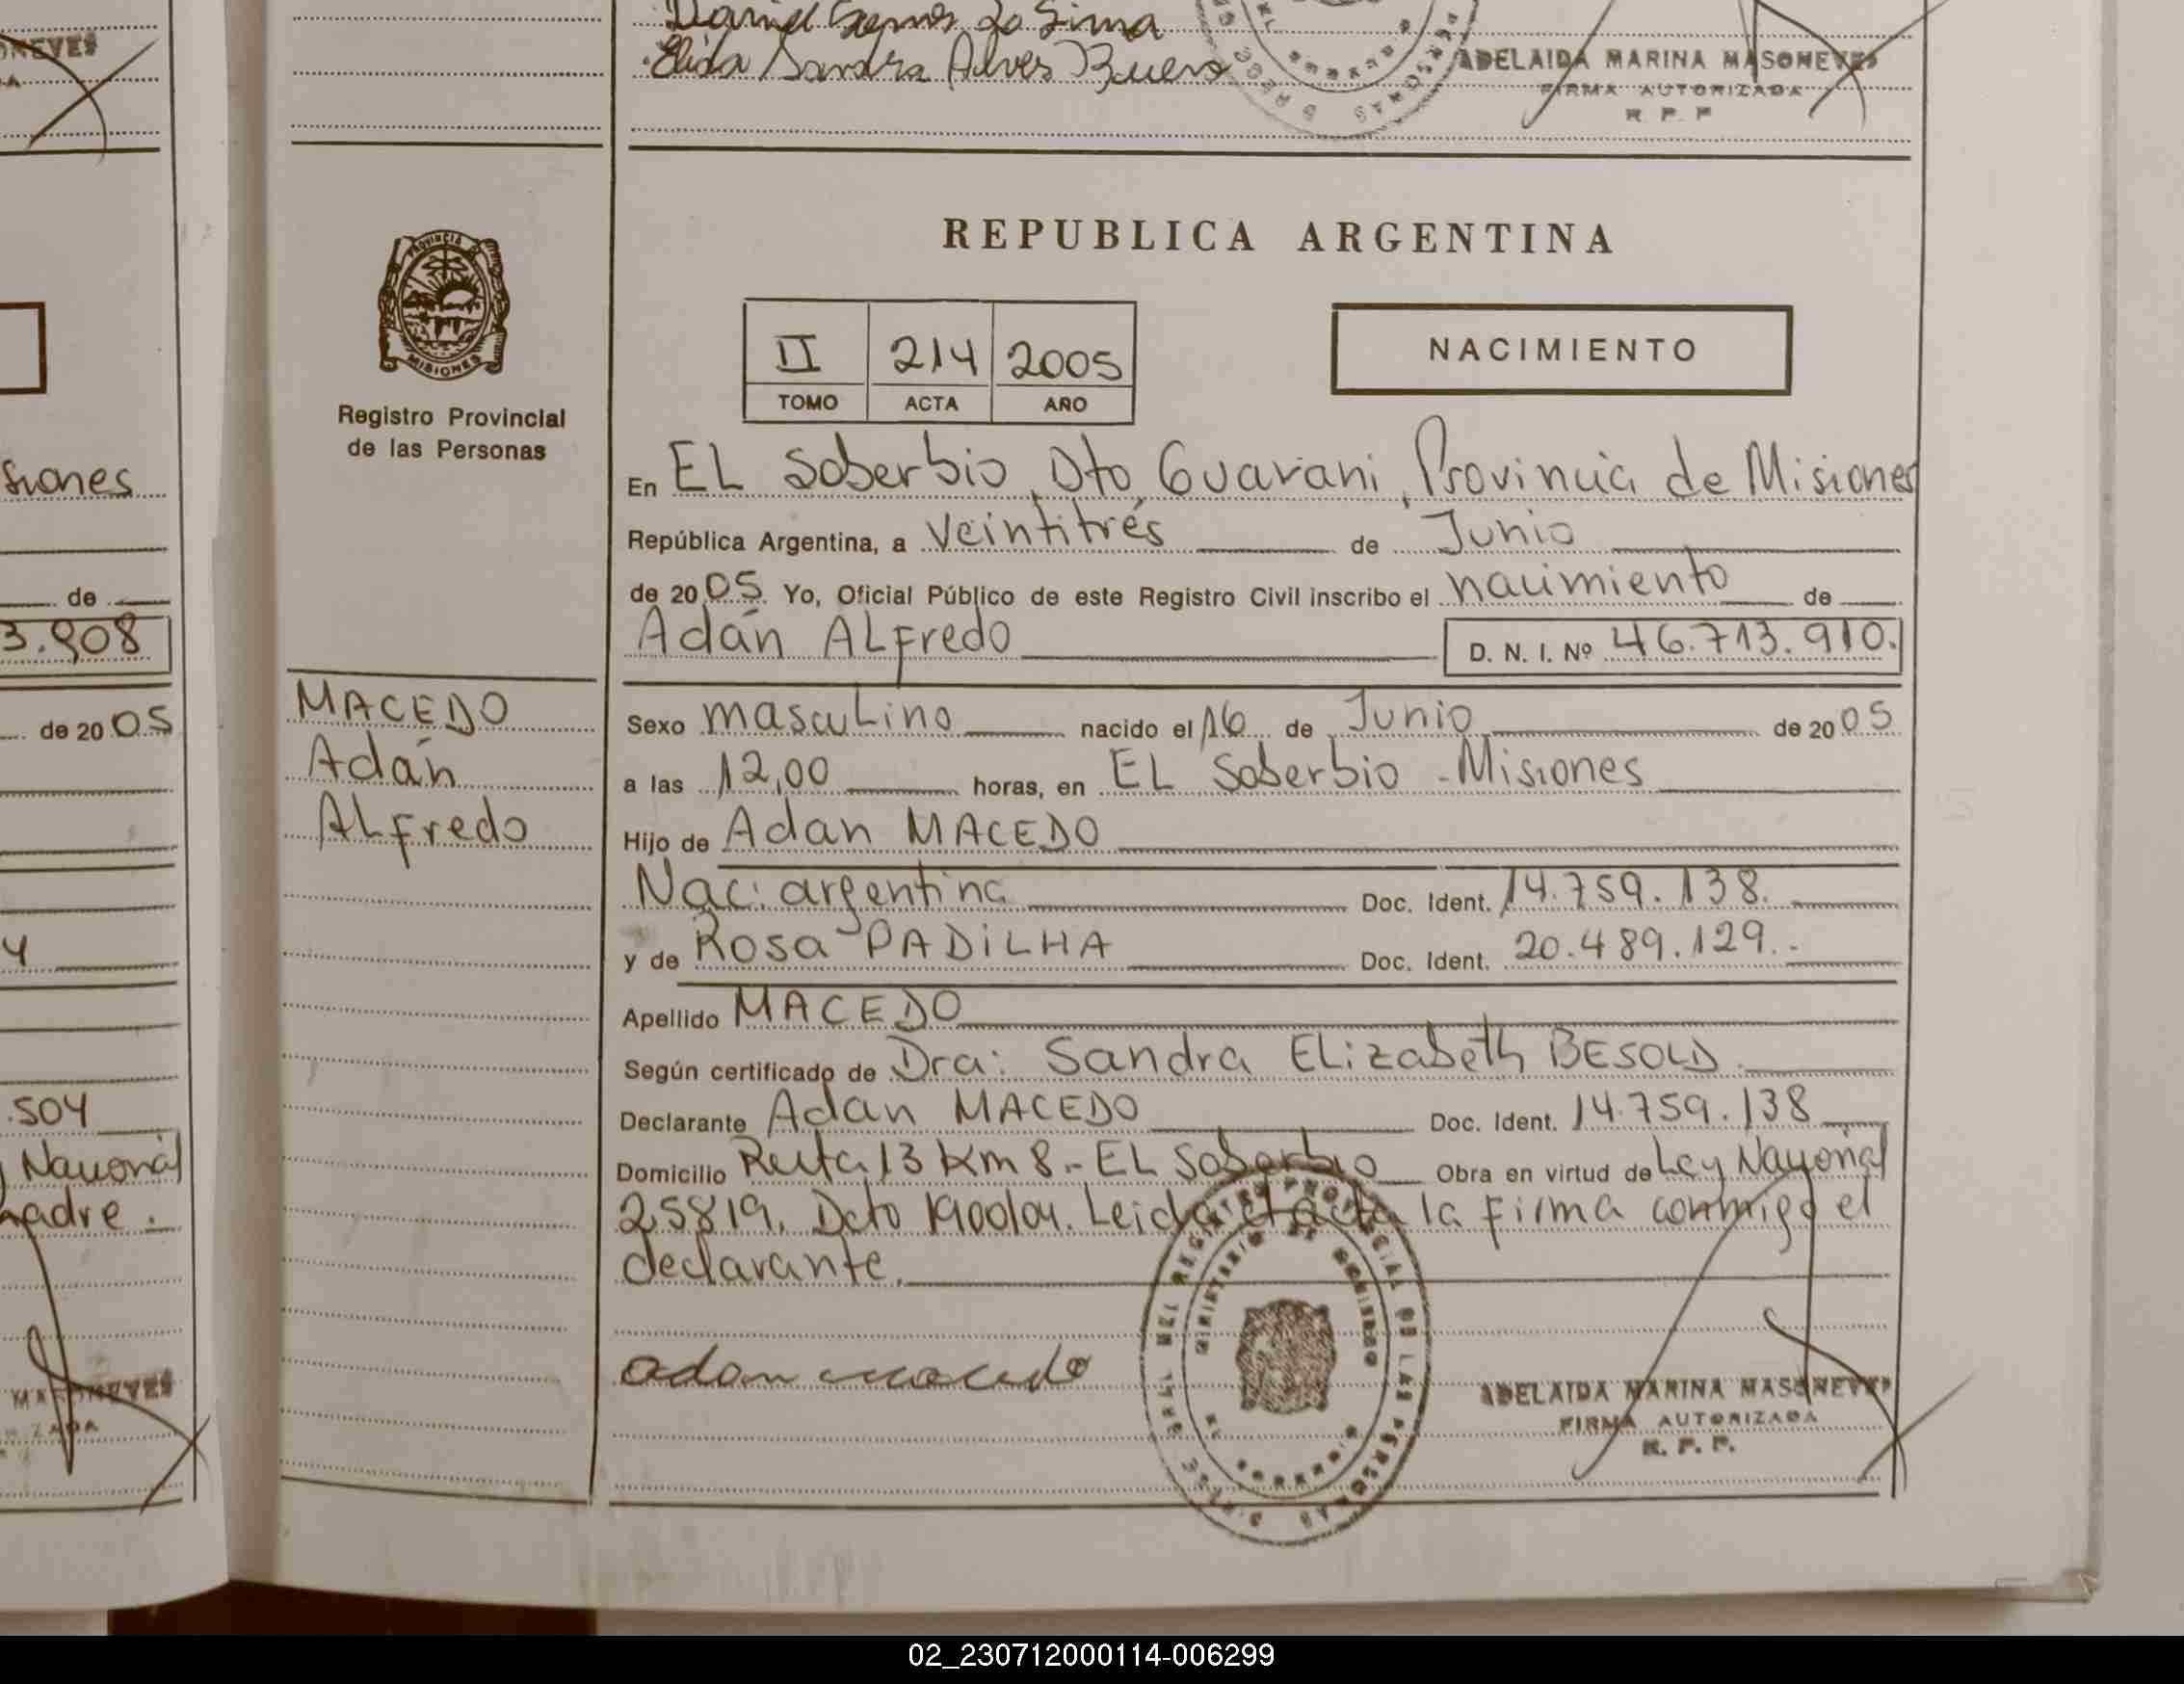 ONEVES
Daniel
Elida Sandra Alves Bueno
ADELAIDA MARINA MASONEVES
FIRMA AUTORIZADA
R. P. P.
PROVINCIA
MISIONES
Registro Provincial
de las Personas
REPUBLICA ARGENTINA
II 214 2005
TOMO ACTA AÑO
NACIMIENTO
En EL Soberbio, Dto, Guarani, Provincia de Misiones
República Argentina, a Veintitrés de Junio
de 2005 Yo, Oficial Público de este Registro Civil inscribo el nacimiento de
Adán ALFredo D. N. I. Nº 46.713.910.
MACEDO
Adán
ALFredo
Sexo masculino nacido el 16 de Junio de 2005
a las 12,00 horas, en EL Soberbio - Misiones
Hijo de Adan MACEDO
Nac: argentina Doc. Ident. 14.759.138.
y de Rosa PADILHA Doc. Ident. 20.489.129.-
Apellido MACEDO
Según certificado de Dra: Sandra ELizabeth BESOLD
Declarante Adan MACEDO Doc. Ident. 14.759.138
Domicilio Ruta 13 Km 8 - EL Soberbio Obra en virtud de Ley Nacional
25819, Dcto 1900/04. Leida el acta la Firma conmigo el
declarante.
adan macedo
ADELAIDA MARINA MASONEVES
FIRMA AUTORIZADA
R. P. P.
siones
de
3.908
de 2005
4
.504
Nacional
madre.
MASONEVES
02_230712000114-006299